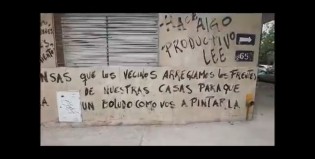 HACE ALGO
PRODUCTIVO
LEE
65
ENSAS QUE LOS VECINOS ARREGLAMOS LOS FRENTES
DE NUESTRAS CASAS PARA QUE
UN BOLUDO COMO VOS A PINTARLA